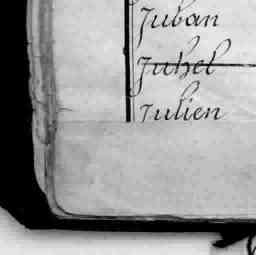 Juban
Juhel
Julien